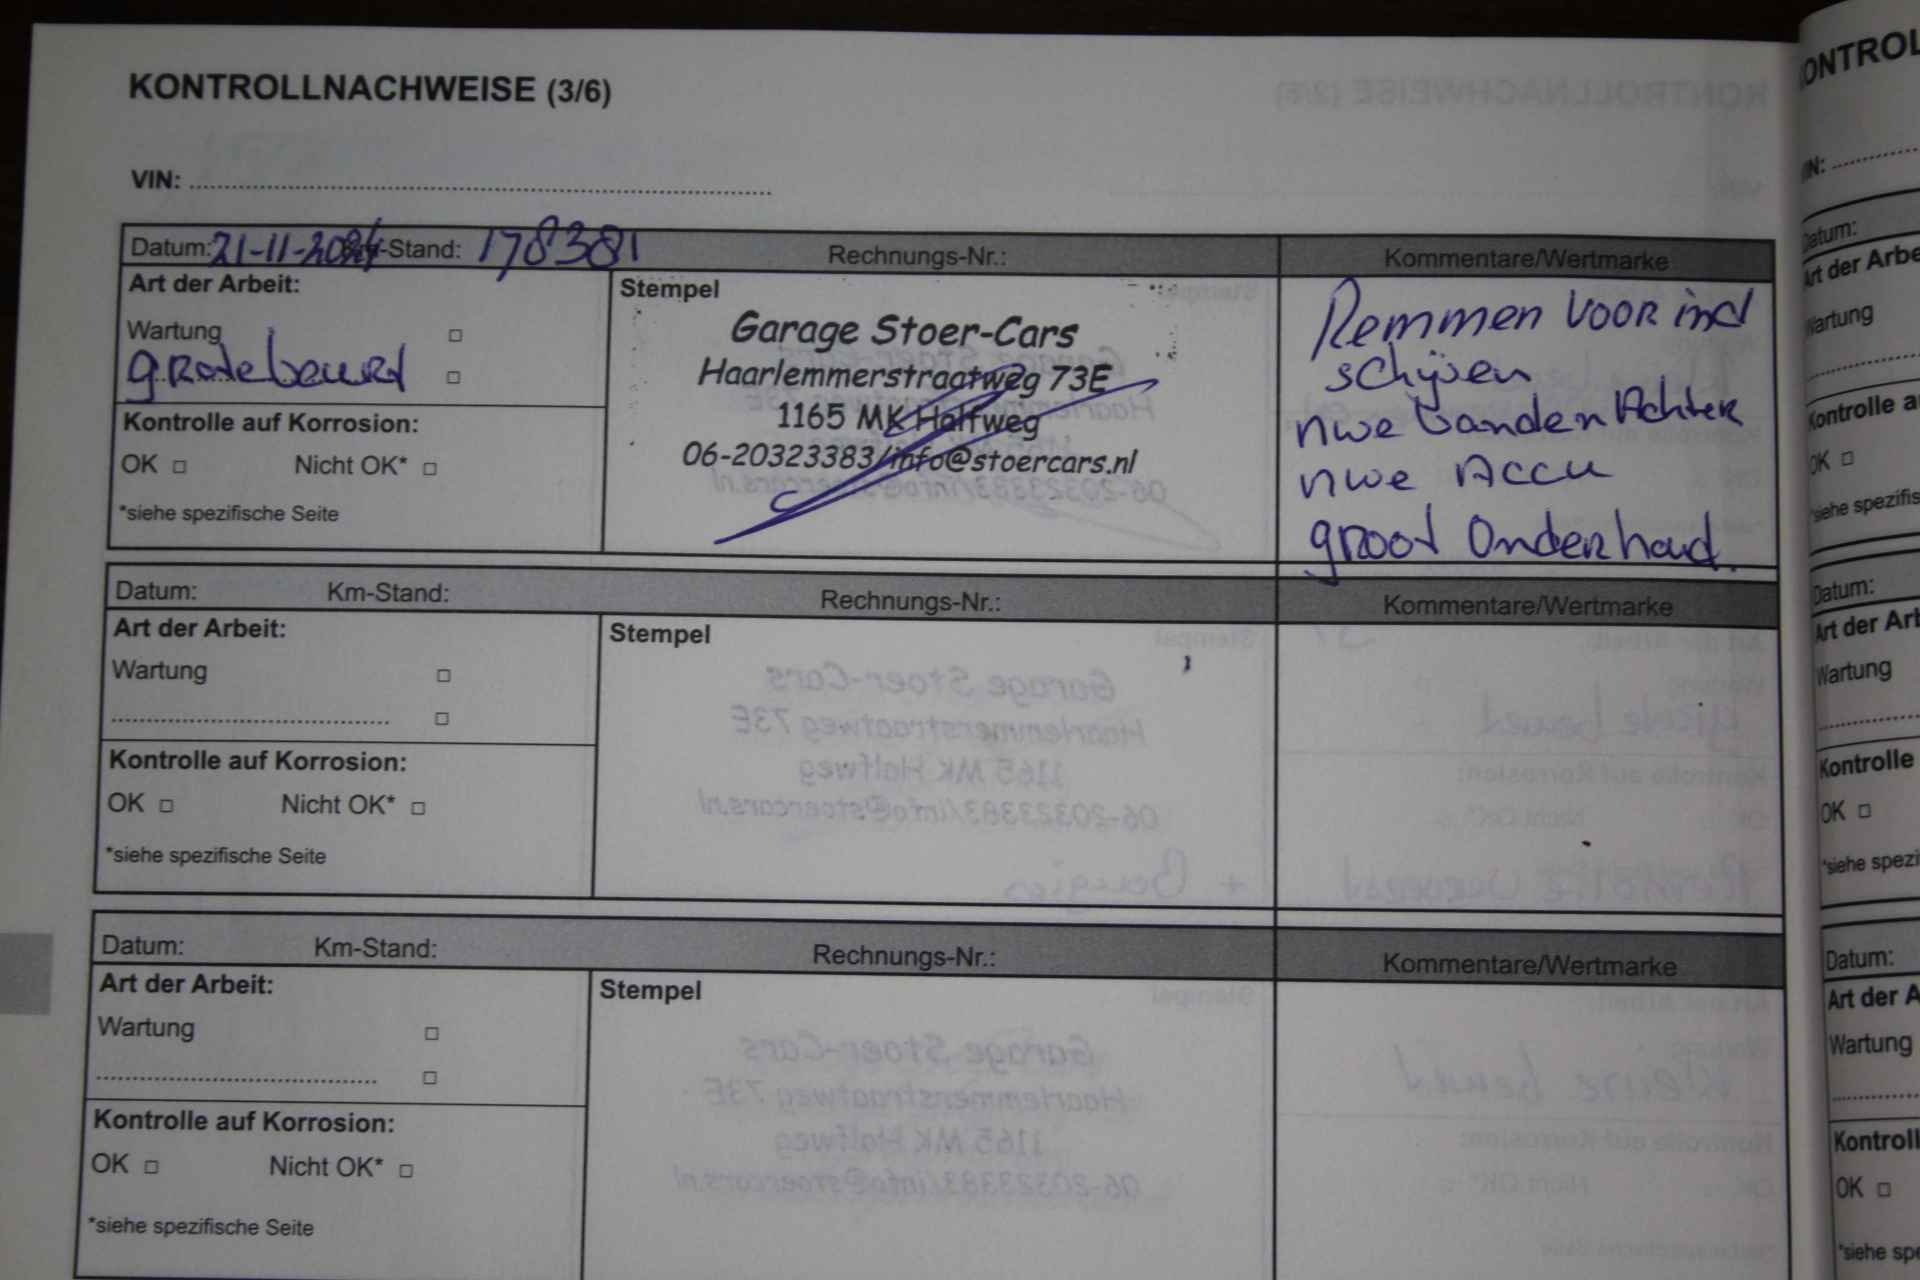 KONTROLLNACHWEISE (3/6)
VIN:
Datum: 21-11-2024 Km-Stand: 178381 Rechnungs-Nr.: Kommentare/Wertmarke
Art der Arbeit:
Wartung
grote beurt
Kontrolle auf Korrosion:
OK Nicht OK*
*siehe spezifische Seite
Stempel
Garage Stoer-Cars
Haarlemmerstraatweg 73E
1165 MK Halfweg
06-20323383/info@stoercars.nl
Remmen voor incl
schijven
nwe banden Achter
nwe Accu
groot Onderhoud.
Datum: Km-Stand: Rechnungs-Nr.: Kommentare/Wertmarke
Art der Arbeit:
Wartung
Kontrolle auf Korrosion:
OK Nicht OK*
*siehe spezifische Seite
Stempel
Datum: Km-Stand: Rechnungs-Nr.: Kommentare/Wertmarke
Art der Arbeit:
Wartung
Kontrolle auf Korrosion:
OK Nicht OK*
*siehe spezifische Seite
Stempel
VIN:
Datum:
Art der Arbe
Wartung
Kontrolle a
OK
*siehe spezifis
Datum:
Art der Art
Wartung
Kontrolle
OK
*siehe spezi
Datum:
Art der A
Wartung
Kontroll
OK
*siehe spe